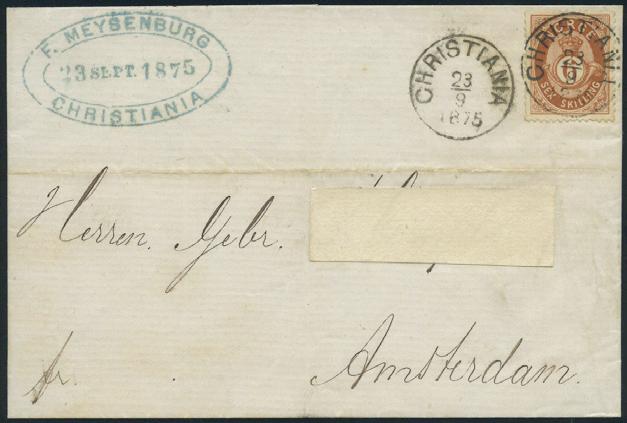 F. MEYSENBURG
23 SEPT. 1875
CHRISTIANIA
CHRISTIANIA
23
9
1875
NORGE
6
SEX SKILLING
CHRISTIANIA
23
9
Herren. Gebr.
Amsterdam.
fr.